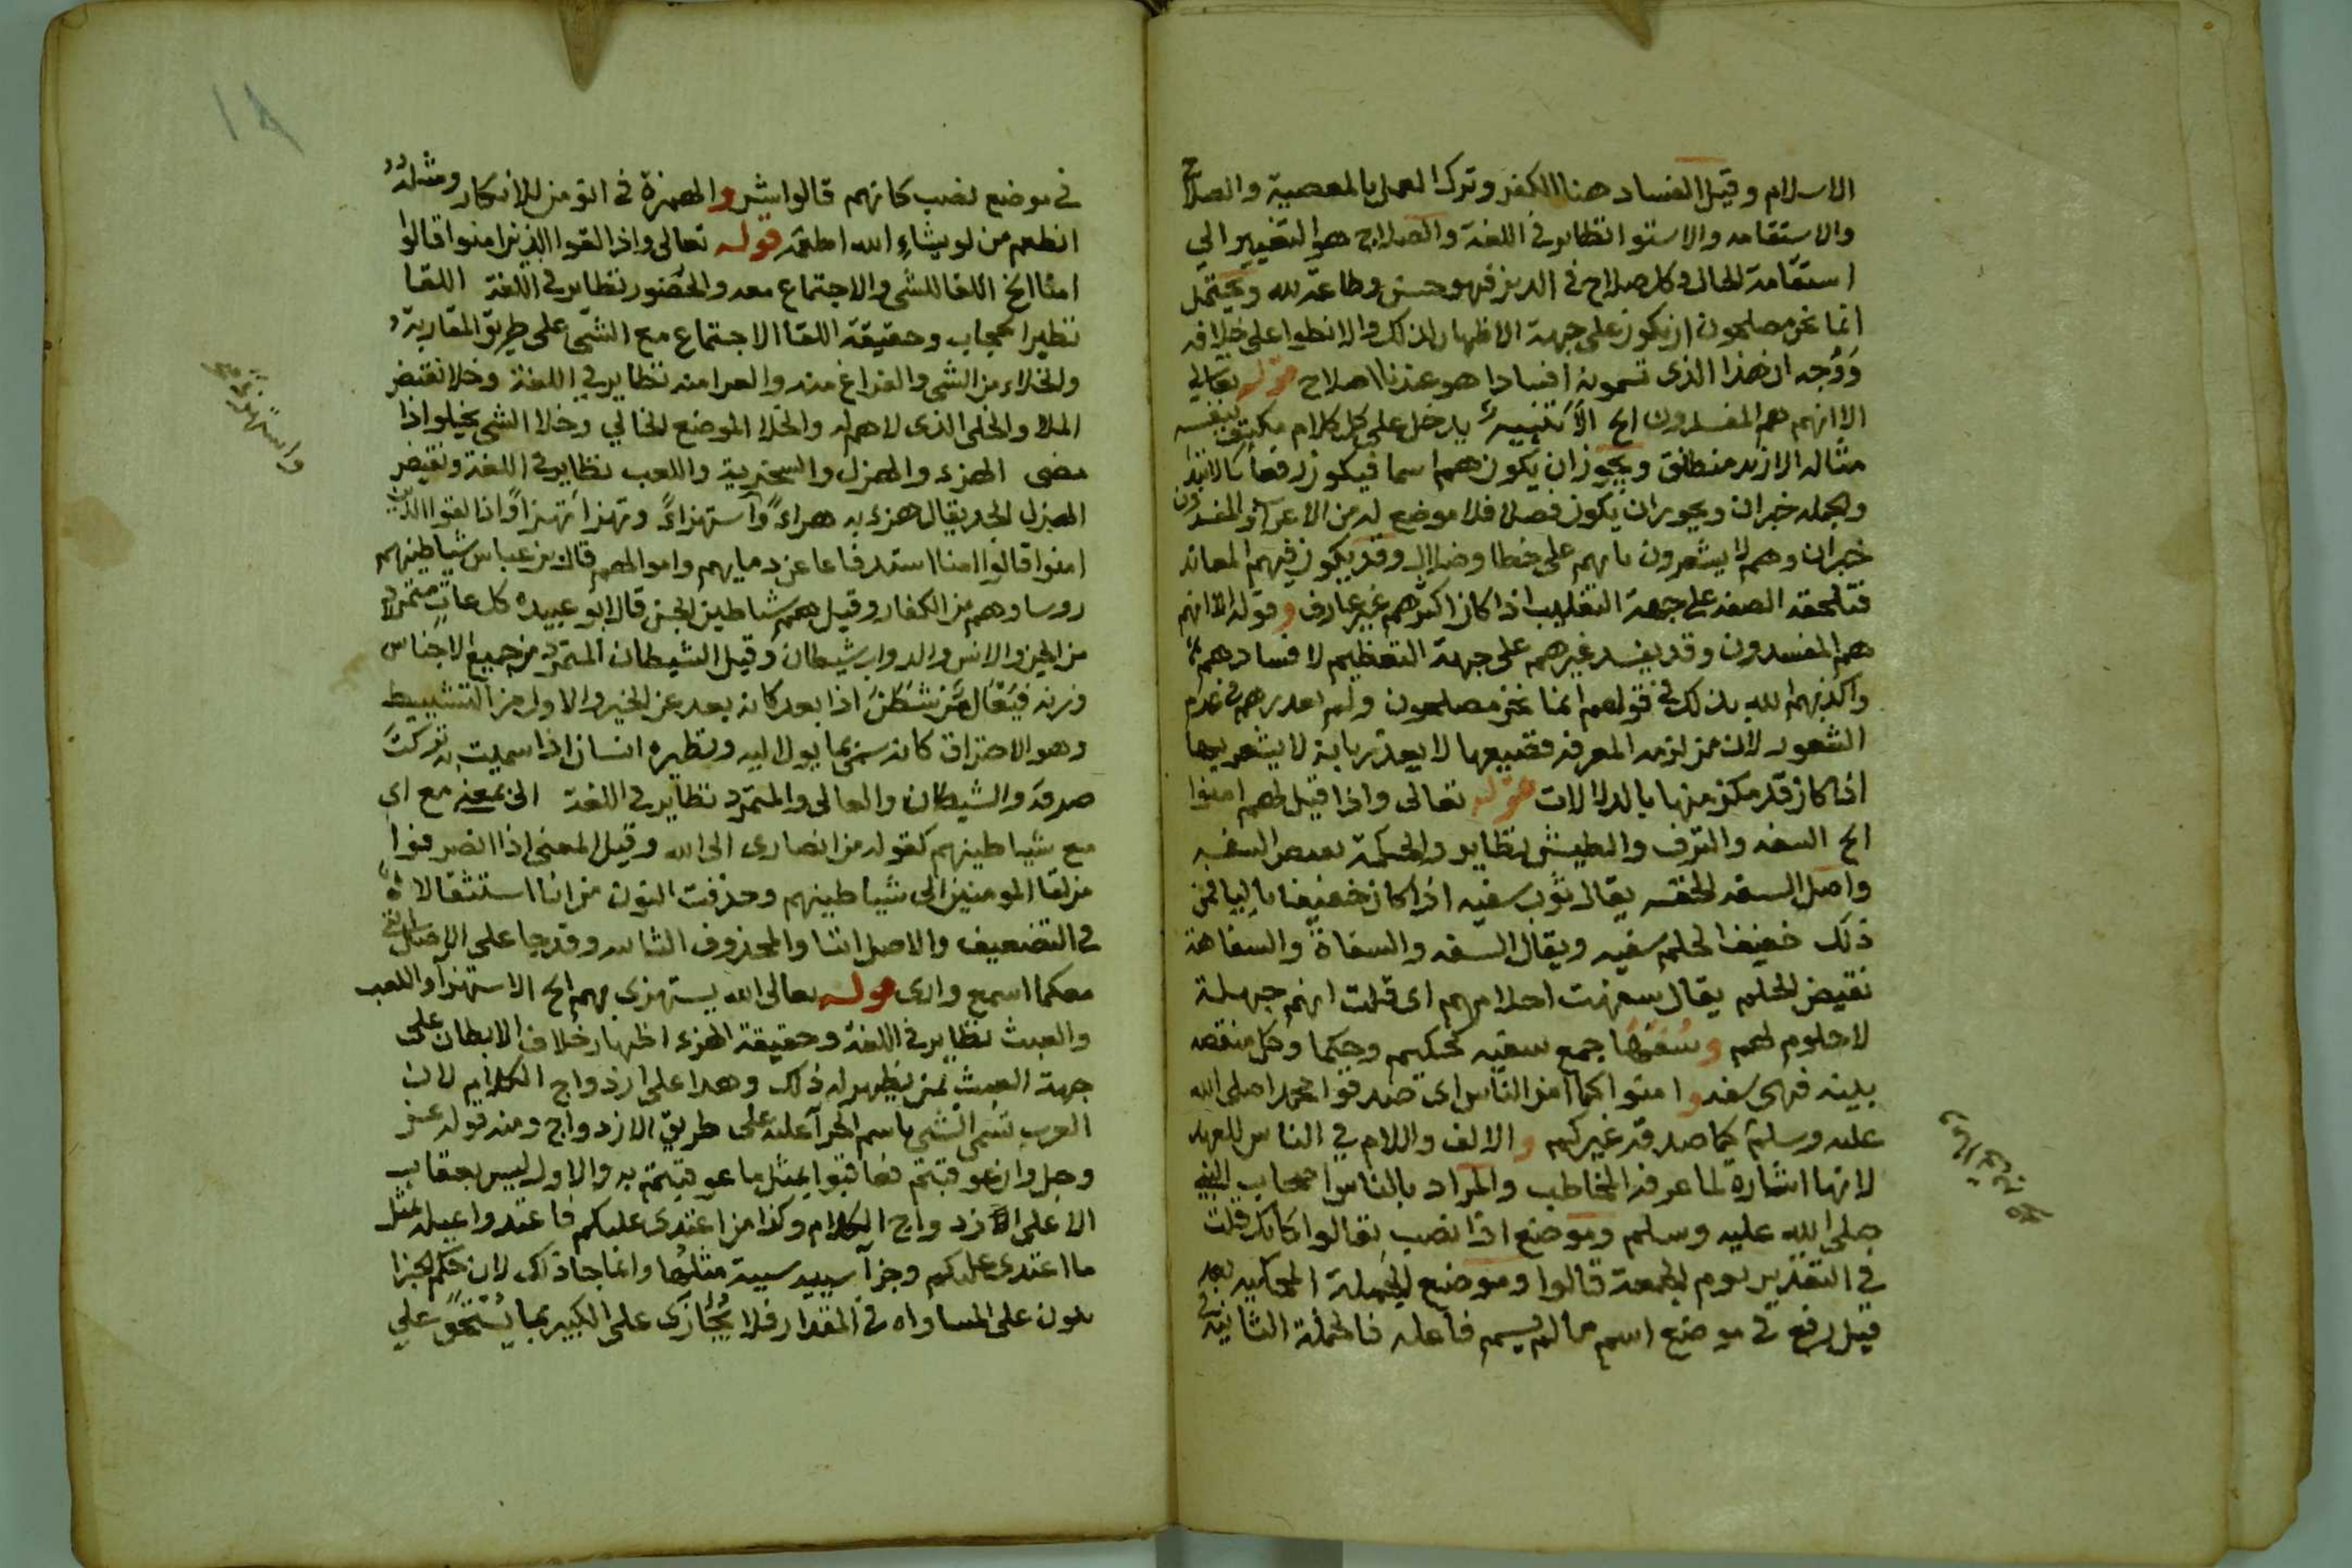 الاسلام وقيل الفساد هنا الكفر وترك العمل بالمعصية والصلاح
والاستقامه والاستوا نظاير في اللغة والصلاح هو التغيير الي
استقامة الحال وكل صلاح في الدين فهو حسن وطاعة لله ويحتمل
انما نحن مصلحون ان يكون على جهة الاظهار لذلك والانطوا على خلافه
ووجه ان هذا الذى تسمونه افسادا هو عندنا اصلاح قوله تعالي
الا انهم هم المفسدون الخ الا تنبيه يدخل على كل كلام مكتف بنفسه
مثاله الا زيد منطلق ويجوز ان يكون هم اسما فيكون رفعا بالابتدا
والجمله خبر ان ويجوز ان يكون فصلا فلا موضع له من الاعراب والمفسدون
خبر ان وهم لا يشعرون بانهم على خطا وضلال وقد يكون فيهم المعاند
فتلحقه الصفه على جهة التغليب اذا كان اكثرهم غير عارف وقوله الا انهم
هم المفسدون وقد يفسد غيرهم على جهة التعظيم لافسادهم
واكذبهم الله بذلك في قولهم انما نحن مصلحون ولم يعذرهم في عدم
الشعور لان من لزمه المعرفه فضيعها لا يعذر بانه لا يشعر بها
اذا كان قد مكن منها بالدلالات قوله تعالى واذا قيل لهم امنوا
الخ السفه والترف والطيش نظاير والحكمة نقيض السفه
واصل السفه الخفه يقال ثوب سفيه اذا كان خفيفا باليا فمن
ذلك خفيف الحلم سفيه ويقال السفه والسفاة والسفاهة
نقيض الحلم يقال سفهت احلامهم اى قلت انهم جهلة
لا حلوم لهم وسفها جمع سفيه كحكيم وحكما وكل منقصه
بلينه فهى سفه وامنوا كما امن الناس اى صدقوا محمدا صلى الله
عليه وسلم كما صدقه غيركم والالف واللام في الناس للعهد
لانها اشارة لما عرفه المخاطب والمراد بالناس اصحاب النبي
صلى الله عليه وسلم وموضع اذا نصب بقالوا كانك قلت
في التقدير يوم الجمعة قالوا وموضع الجملة المحكيه بعد
قيل رفع في موضع اسم ما لم يسم فاعله فالجملة الثانيه
١٨
في موضع نصب كانهم قالوا شر والهمزة في انومن للانكار ومثله
انطعم من لو يشاء الله اطعمه قوله تعالى واذا لقوا الذين امنوا قالوا
امنا الخ اللقا للشى والاجتماع معه والحضور نظاير في اللغة اللقا
نظير الحجاب وحقيقة اللقا الاجتماع مع الشى على طريق المقاربة
والخلاء من الشى والفراغ منه والعرا منه نظاير في اللغة وخلا نقيض
الملا والخلى الذى لا هم له والخلا الموضع الخالي وخلا الشى يخلو اذا
مضى الهزء والهزل والسخرية واللعب نظاير في اللغة ونقيض
الهزل الجد يقال هزء به هزاء واستهزاء وتهزا تهزا واذا لقوا الذين
امنوا قالوا امنا استدفاعا عن دمايهم واموالهم قال بن عباس شياطينهم
روساوهم من الكفار وقيل هم شياطين الجن قال ابو عبيده كل عات متمرد
من الجن والانس والدواب شيطان وقيل الشيطان المتمرد من جميع الاجناس
وزنه فيعال من شطن اذا بعد كانه بعد عن الخير والاول من التشييط
وهو الاحتراق كانه سمى بما يول اليه ونظيره انسان اذا سميت به تركت
صرفه والشيطان والعالى والمتمرد نظاير في اللغة الى بمعنى مع اى
مع شياطينهم كقوله من انصارى الى الله وقيل المعنى اذا انصرفوا
من لقا المومنين الى شياطينهم وحذفت النون من انا استثقالا
في التضعيف والاصل اننا والمحذوف الثانيه وقد جا على الاصل في
معكما اسمع وارى قوله تعالى الله يستهزى بهم الخ الاستهزا واللعب
والعبث نظاير في اللغة وحقيقة الهزء اظهار خلاف الابطان على
جهة العبث بمن يظهر له ذلك وهذا على ازدواج الكلام لان
العرب تسمى الشى باسم الجزا عليه على طريق الازدواج ومنه قوله عز
وجل وان عوقبتم فعاقبوا بمثل ما عوقبتم به والاول ليس بعقاب
الا على ازدواج الكلام وكذا من اعتدى عليكم فاعتدوا عليه بمثل
ما اعتدى عليكم وجزا سييه سيية مثلها وانما جا ذلك لان حكم الجزا
يكون على المساواه في المقدار فلا يجازى على الكبير بما يستحق علي